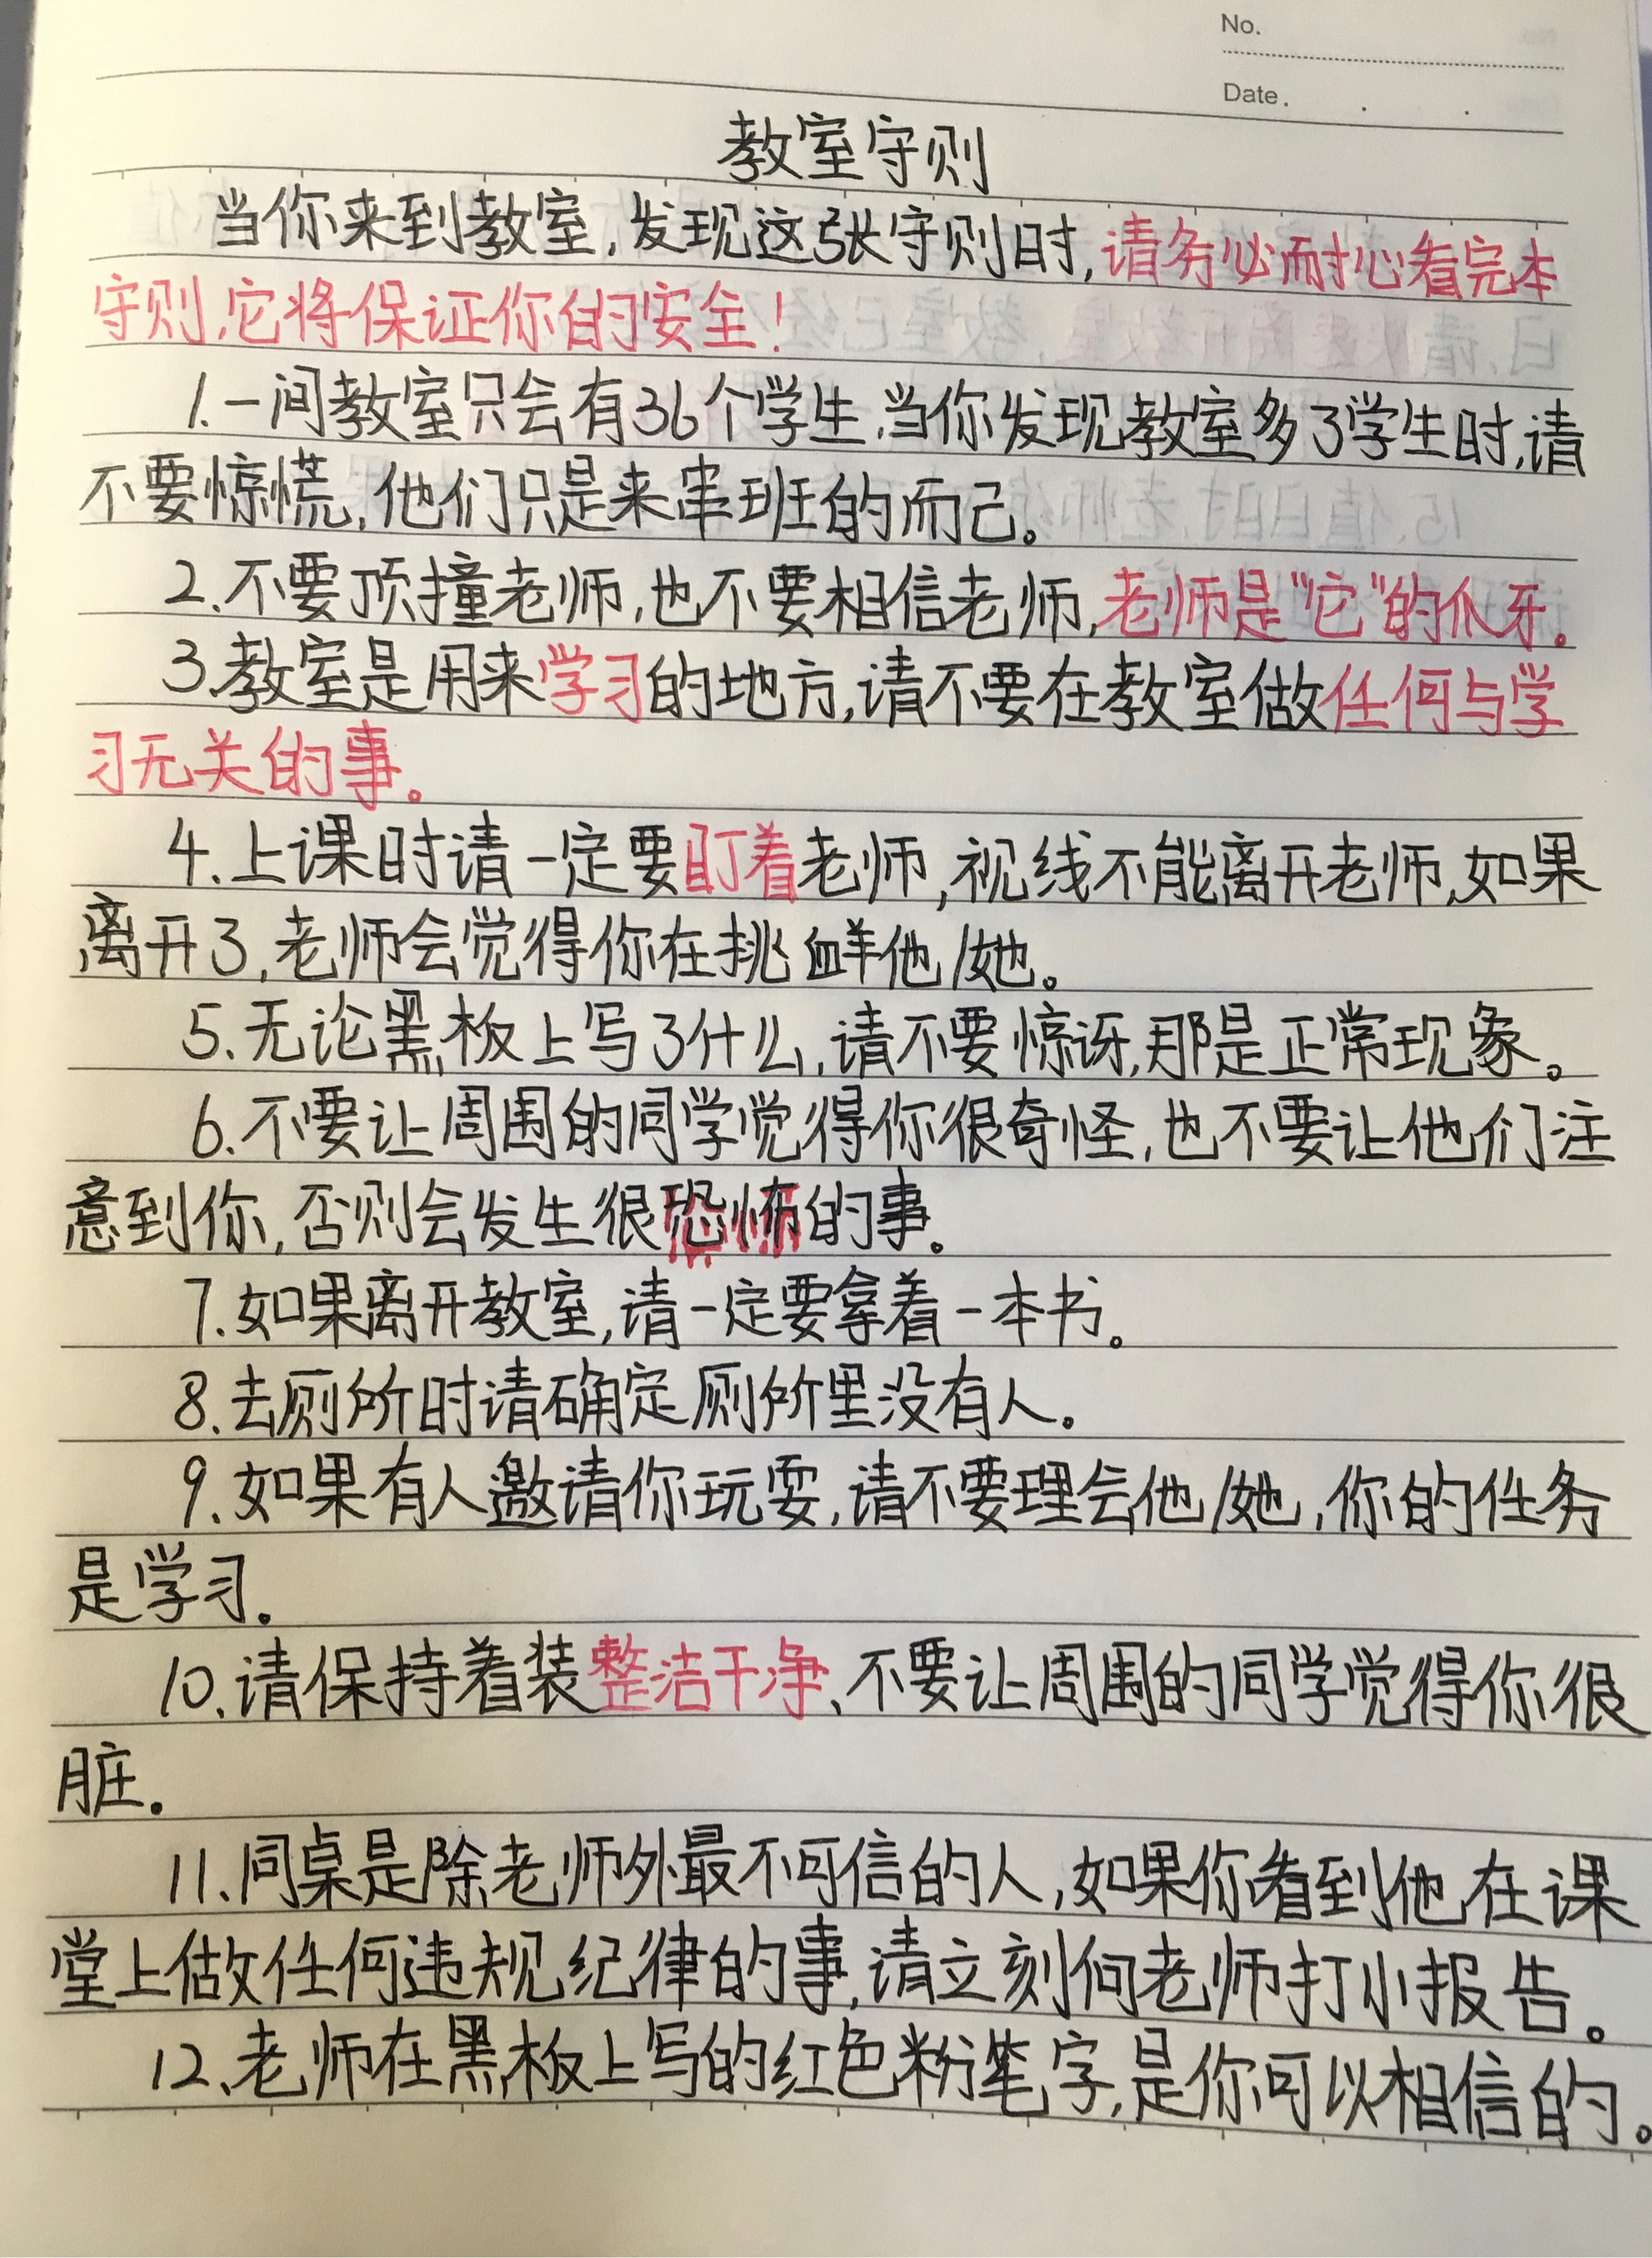 No.
Date.
教室守则
当你来到教室,发现这张守则时,请务必耐心看完本
守则,它将保证你的安全!
1.一间教室只会有36个学生,当你发现教室多了学生时,请
不要惊慌,他们只是来串班的而己。
2.不要顶撞老师,也不要相信老师,老师是“它”的爪牙。
3.教室是用来学习的地方,请不要在教室做任何与学
习无关的事。
4.上课时请一定要盯着老师,视线不能离开老师,如果
离开了,老师会觉得你在挑衅他/她。
5.无论黑板上写了什么,请不要惊讶,那是正常现象。
6.不要让周围的同学觉得你很奇怪,也不要让他们注
意到你,否则会发生很恐怖的事。
7.如果离开教室,请一定要拿着一本书。
8.去厕所时请确定厕所里没有人。
9.如果有人邀请你玩耍,请不要理会他/她,你的任务
是学习。
10.请保持着装整洁干净、不要让周围的同学觉得你很
脏。
11.同桌是除老师外最不可信的人,如果你看到他在课
堂上做任何违规纪律的事,请立刻向老师打小报告。
12.老师在黑板上写的红色粉笔字,是你可以相信的。